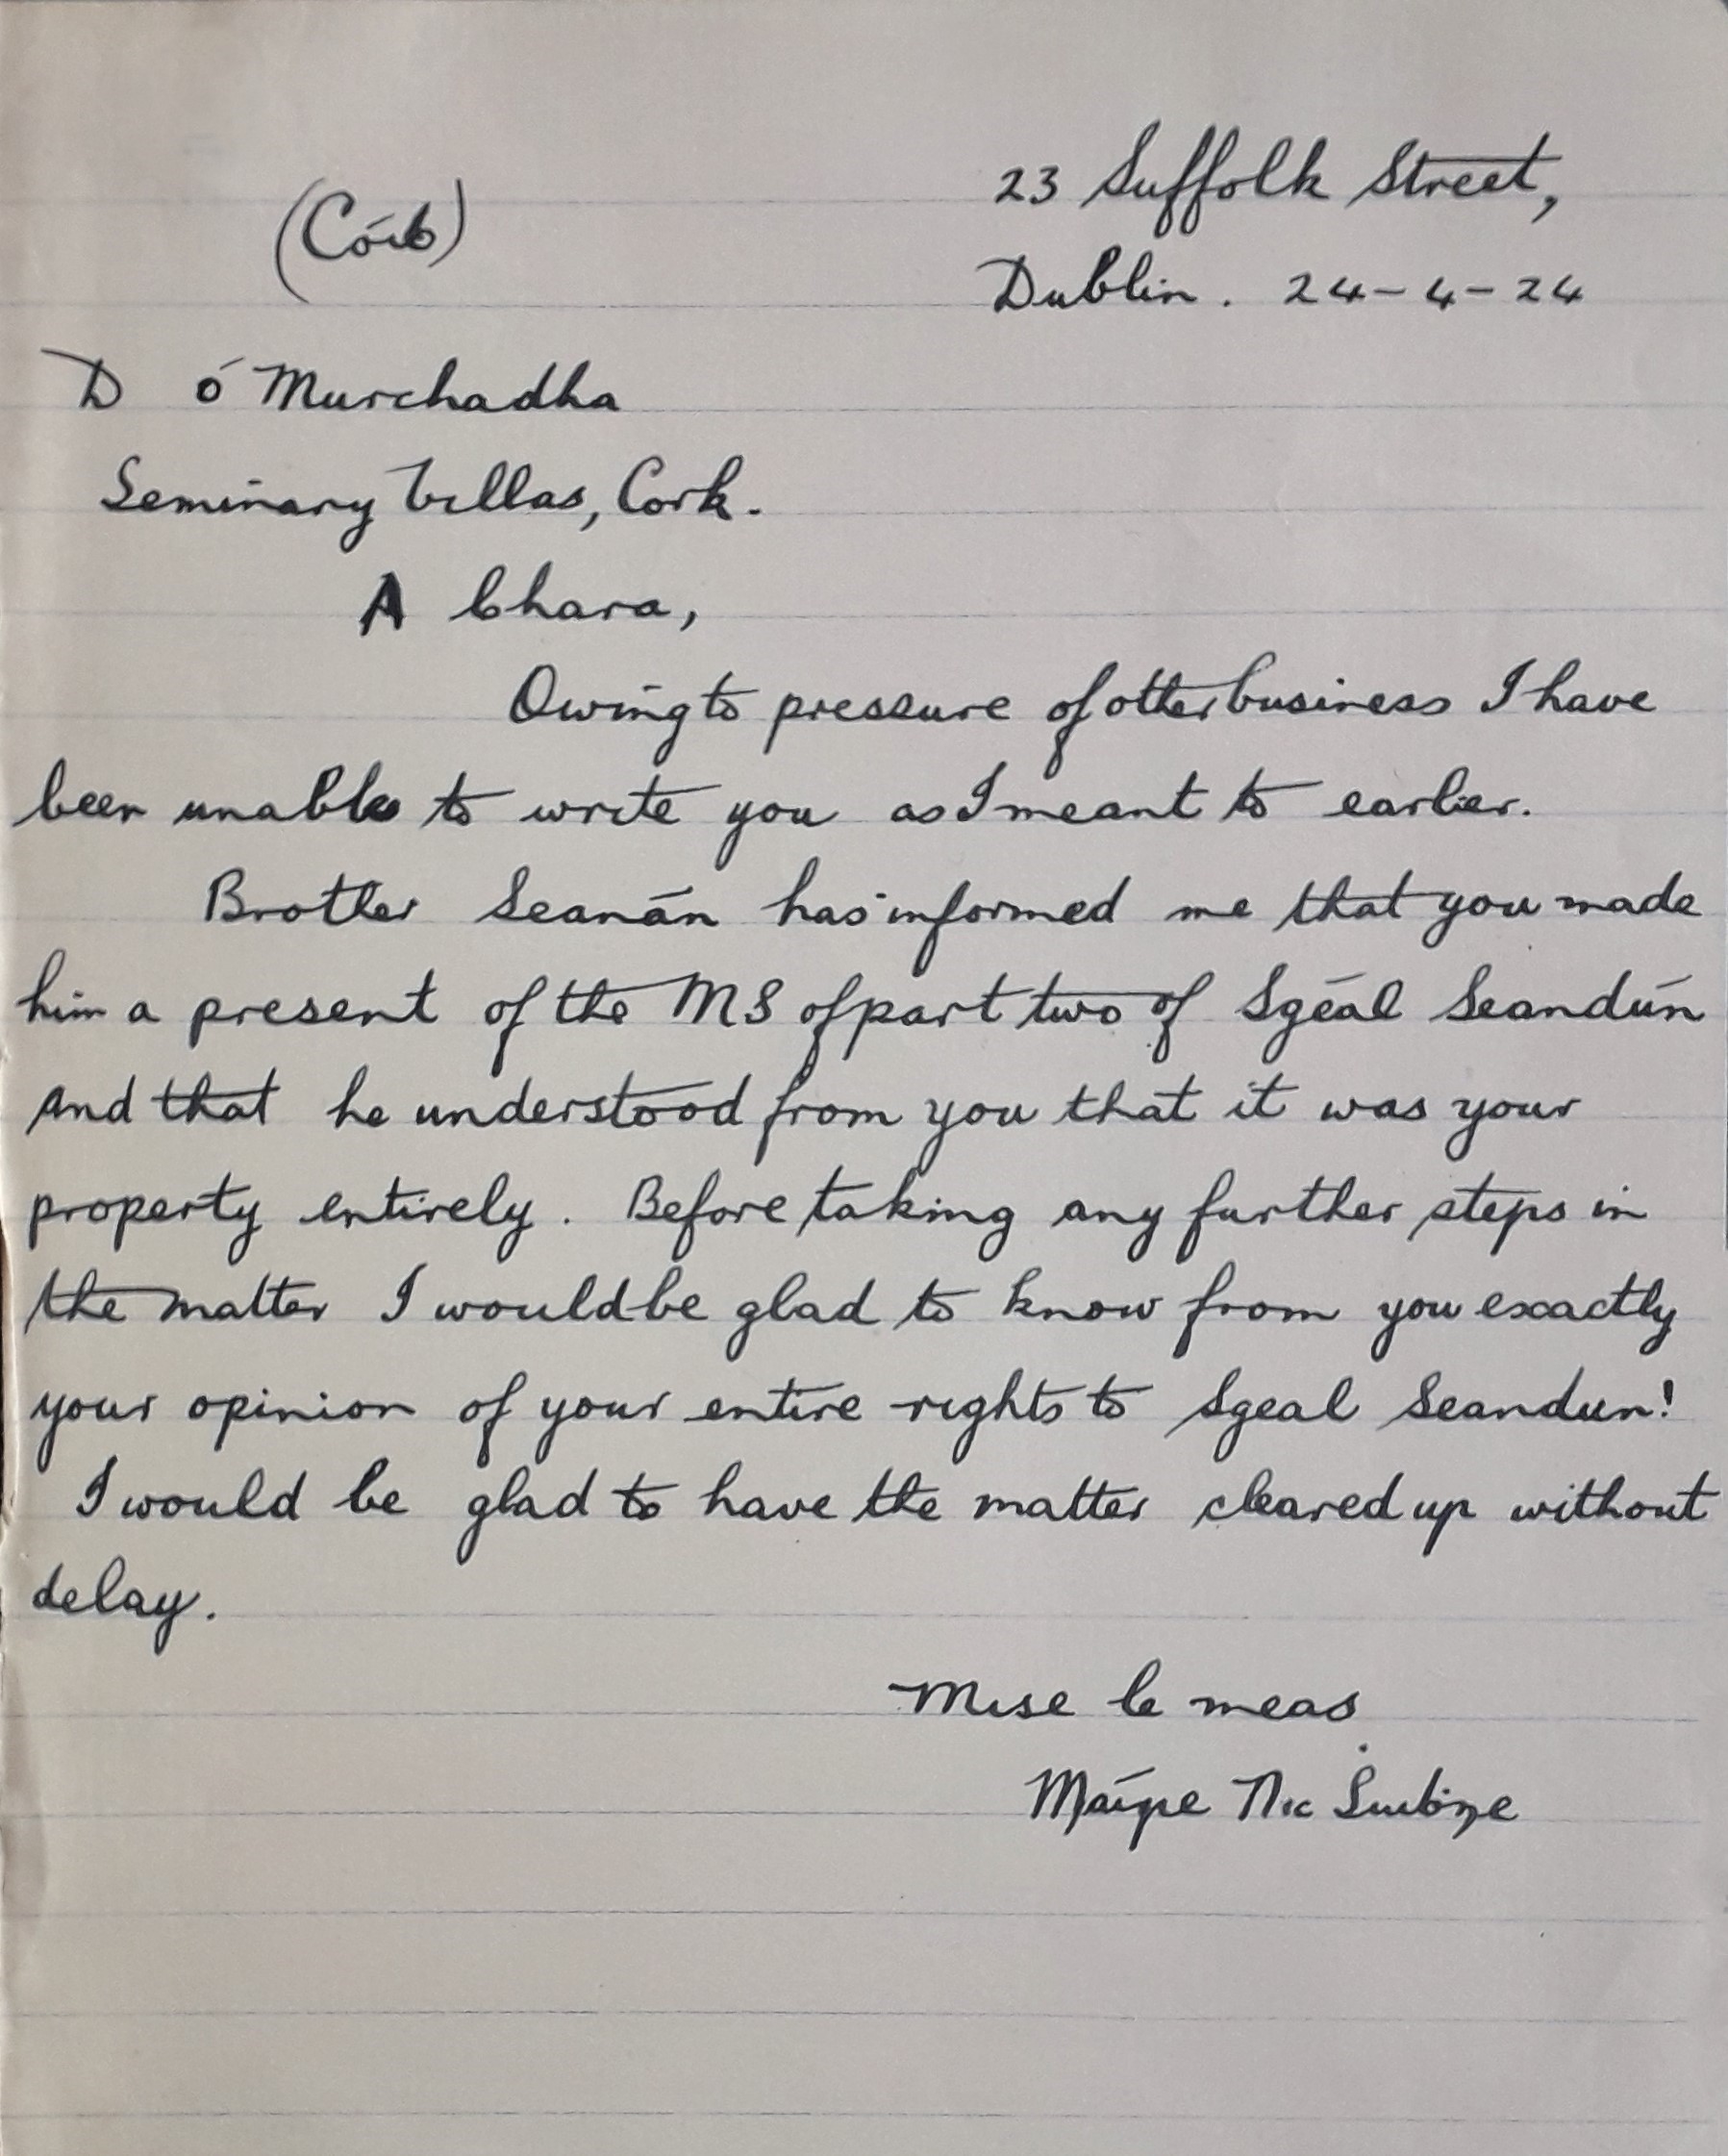 23 Suffolk Street,
(Cóib)
Dublin. 24-4-24
D Ó Murchadha
Seminary Villas, Cork.
A Chara,
Owing to pressure of other business I have
been unable to write you as I meant to earlier.
Brother Seanán has informed me that you made
him a present of the MS of part two of Sgéal Seandún
and that he understood from you that it was your
property entirely. Before taking any further steps in
the matter I would be glad to know from you exactly
your opinion of your entire rights to Sgeal Seandun!
I would be glad to have the matter cleared up without
delay.
Mise le meas
Máire Nic Suibṅe